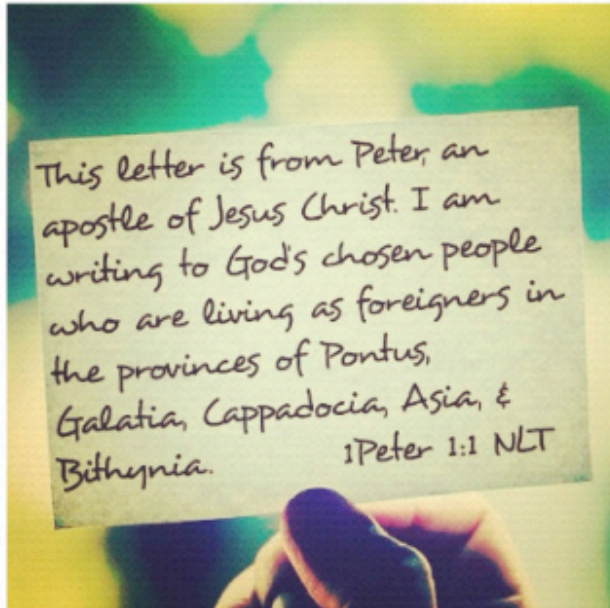 This letter is from Peter, an
apostle of Jesus Christ. I am
writing to God's chosen people
who are living as foreigners in
the provinces of Pontus,
Galatia, Cappadocia, Asia, &
Bithynia. 1Peter 1:1 NLT